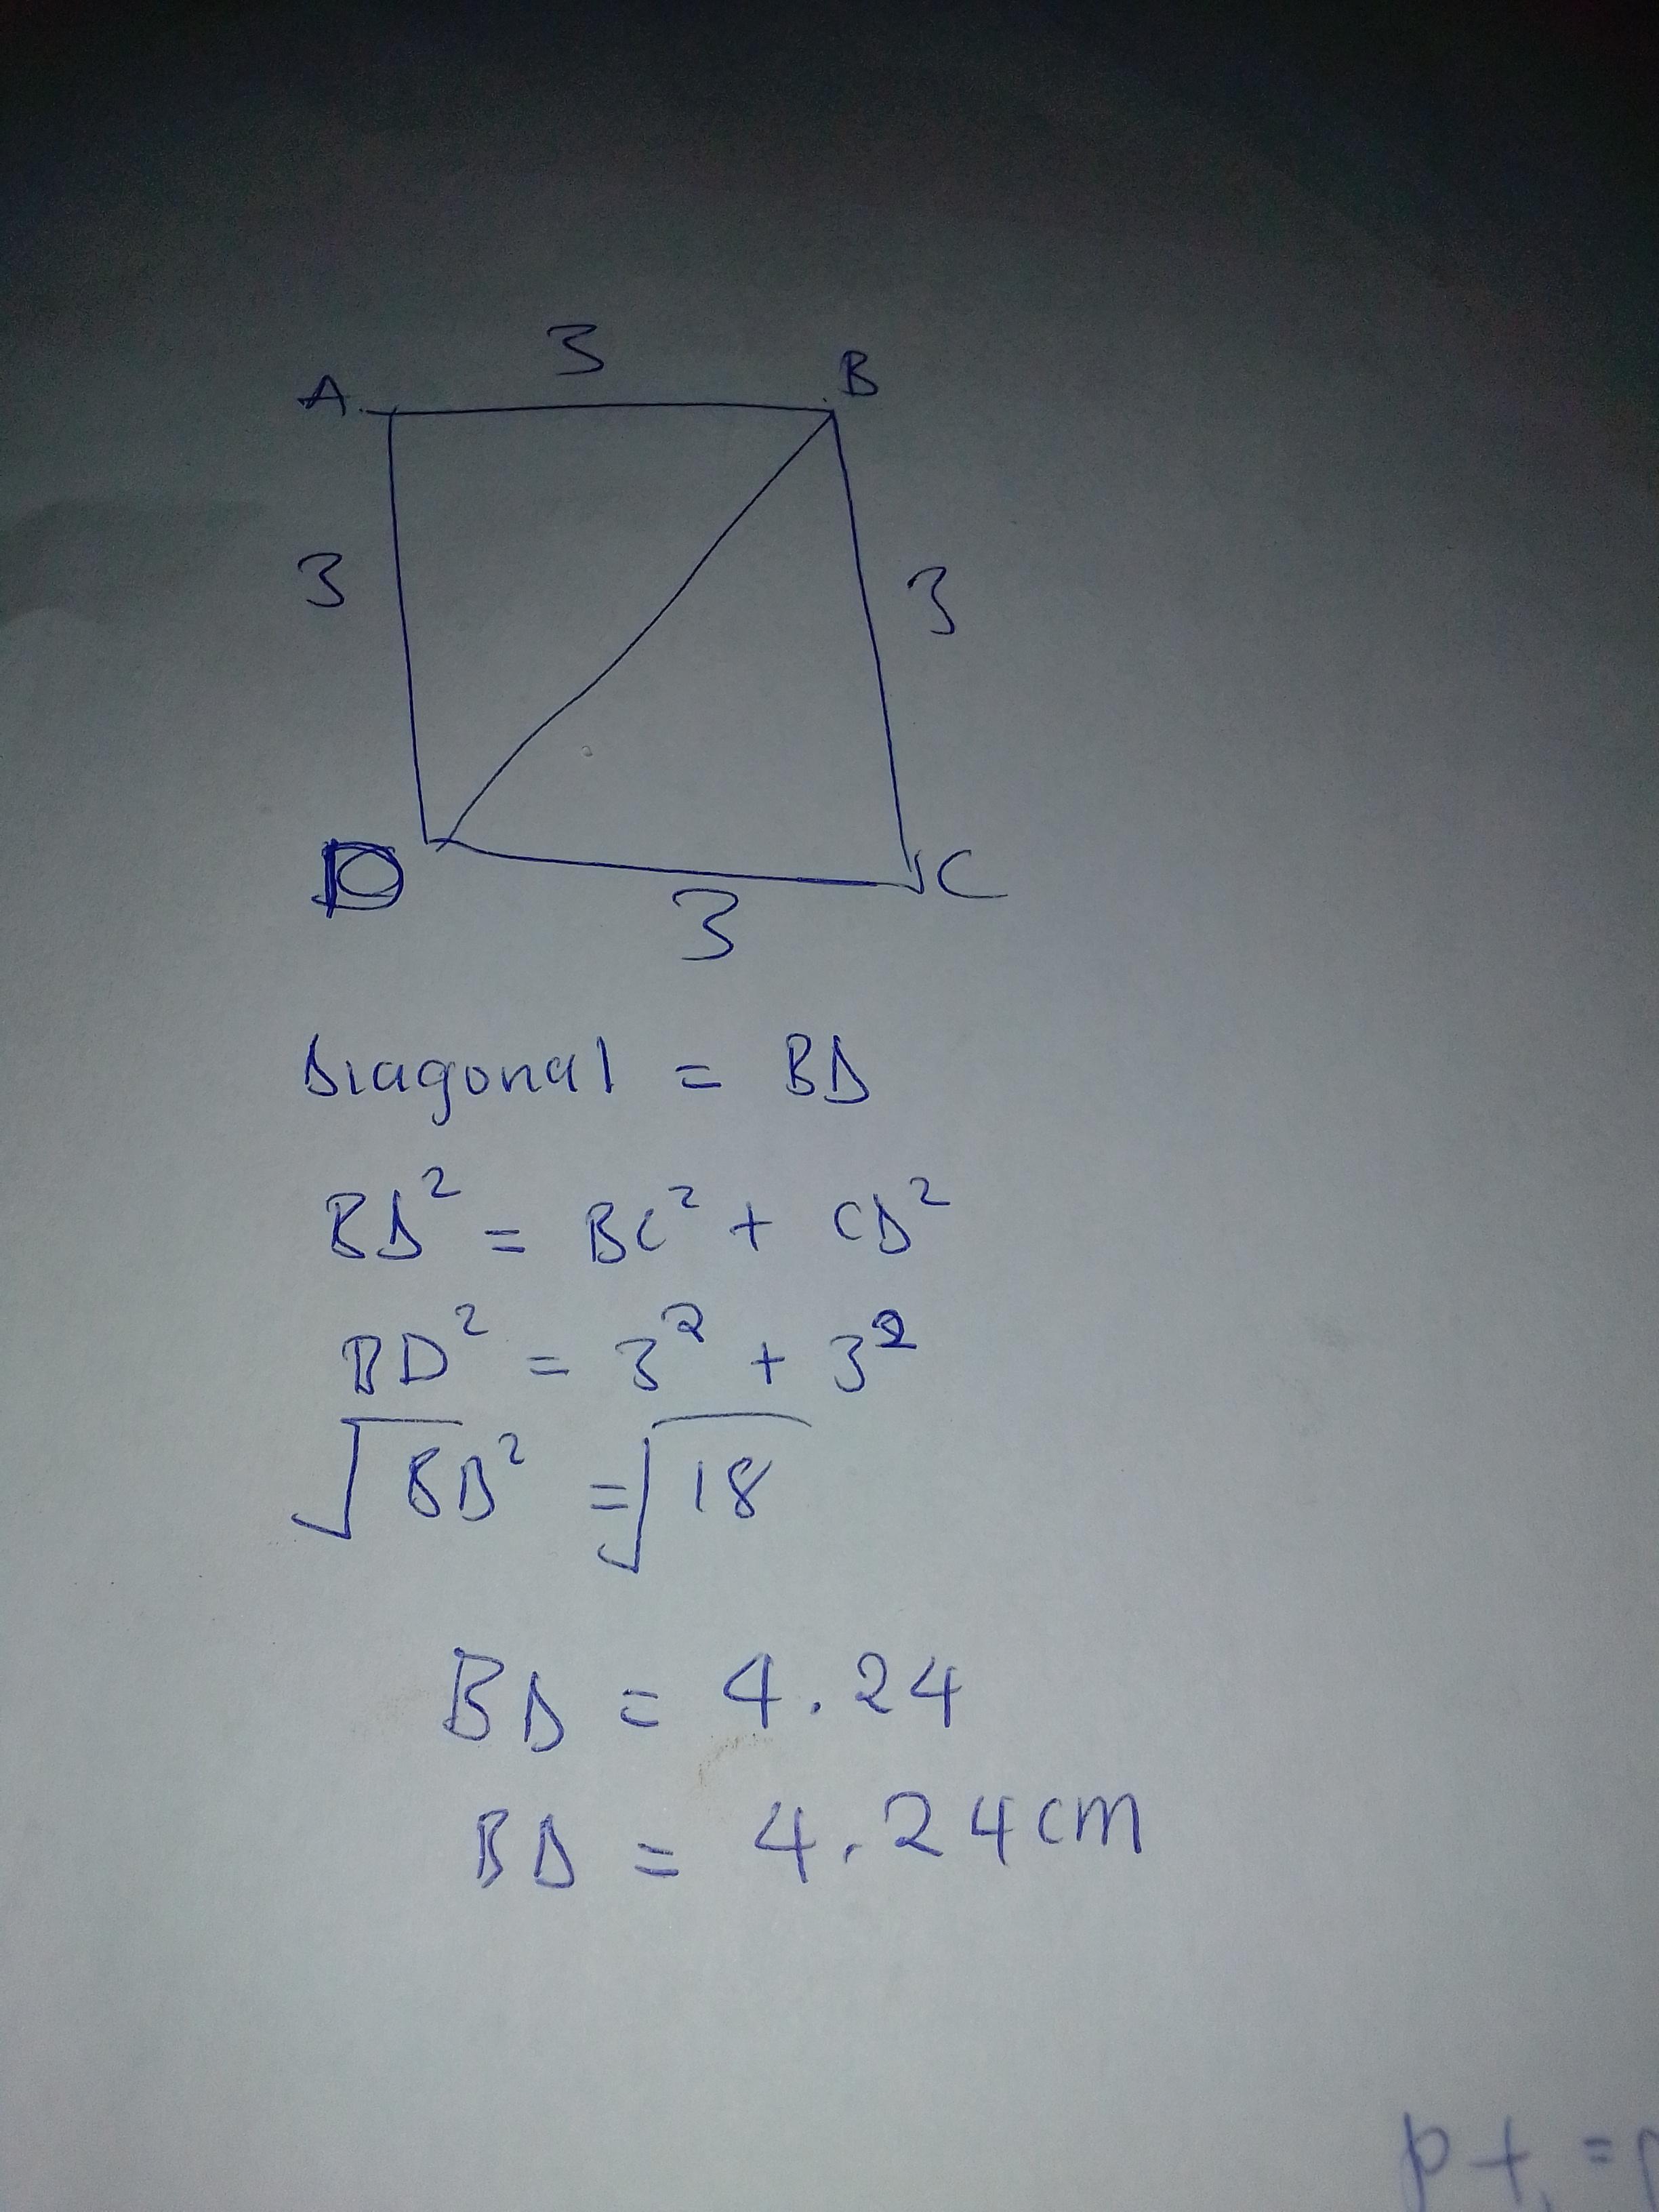 3
A. B
3 3
D C
3
Diagonal = BD
BD² = BC² + CD²
BD² = 3² + 3²
√BD² = √18
BD = 4.24
BD = 4.24cm